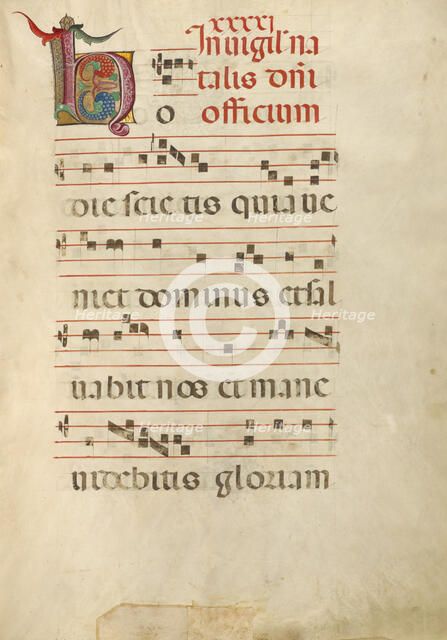 xxxxj
In uigil' na
talis dñi
Ho officium
die scietis quia ue
Heritage Heritage
niet dominus et sal
Heritage © Heritage
uabit nos et mane
Heritage Heritage
uidebitis gloriam